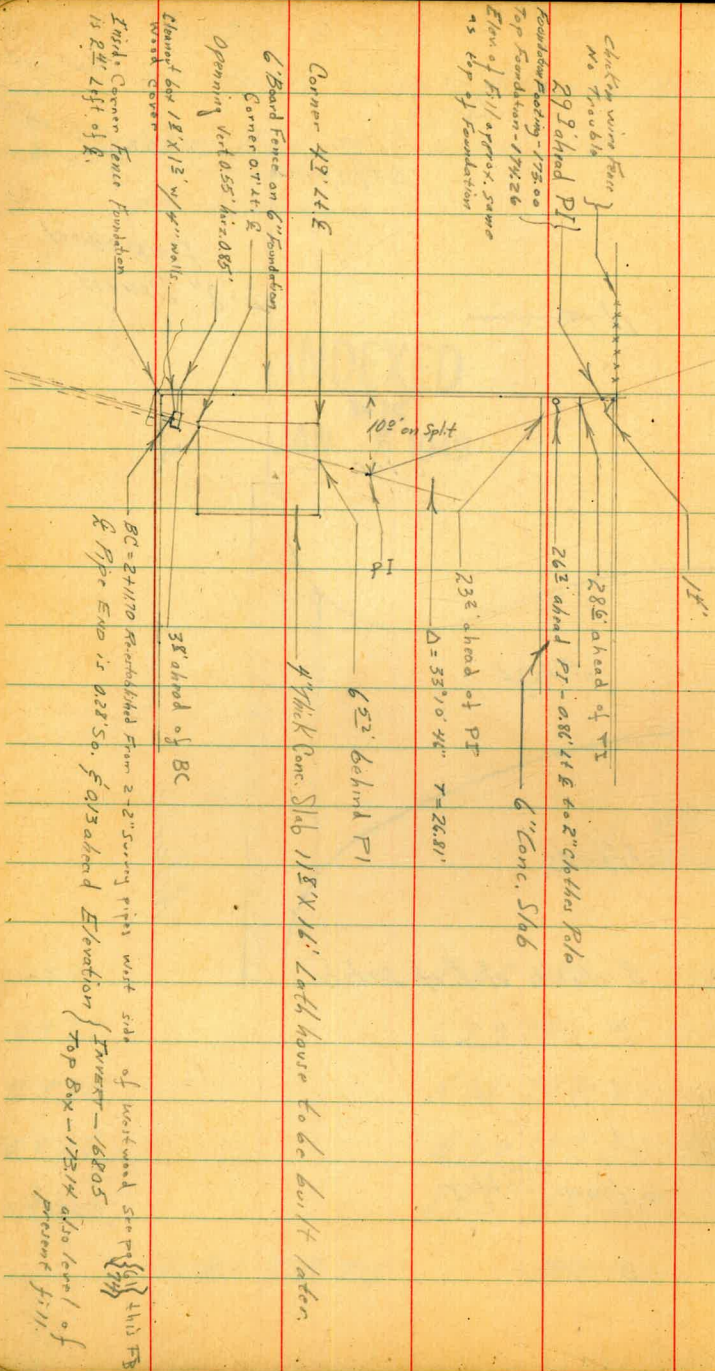 Chicken wire Fence
No Trouble
29.3' ahead PI
Foundation Footing - 173.00
Top Foundation - 174.26
Elev of Fill approx. same
as top of Foundation
Corner 4.9' Lt ℄
6' Board Fence on 6" Foundation
Corner 0.7' Lt. ℄
Openning Vert 0.55' horz. 0.85'
Cleanout box 1.8' X 1.3' w/ 4" walls.
Wood Cover
Inside Corner Fence Foundation
is 2.4' Left of ℄.
28.6' ahead of PI
26.3' ahead PI - 0.86' Lt ℄ to 2" Clothes Pole
6" Conc. Slab
23.2' ahead of PI
Δ = 33°10'46" T = 26.81'
PI
6.52' behind PI
4" Thick Conc. Slab 11.8' X 16.' Lath house to be built later.
3.8' ahead of BC
BC = 2+11.70 Re-established From 2-2" Survey pipes West side of Westwood see pg this FB
℄ Pipe END is 0.28' So. & 0.13 ahead Elevation { INVERT - 168.05
Top Box - 173.14 also level of
present fill.